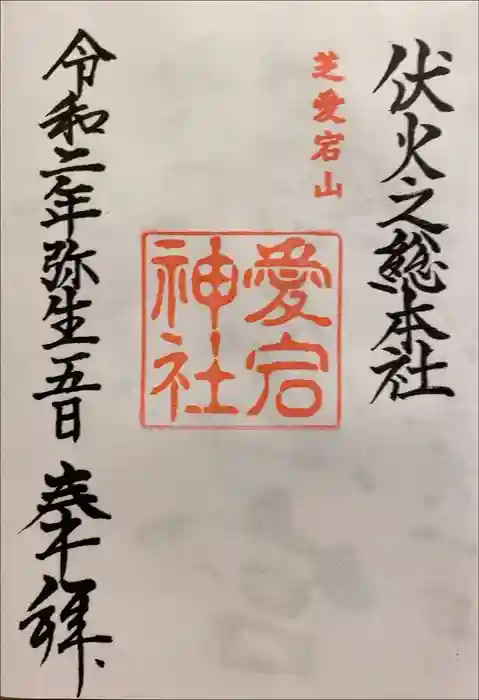 伏火之総本社
芝愛宕山
愛宕
神社
令和二年弥生五日 奉拝